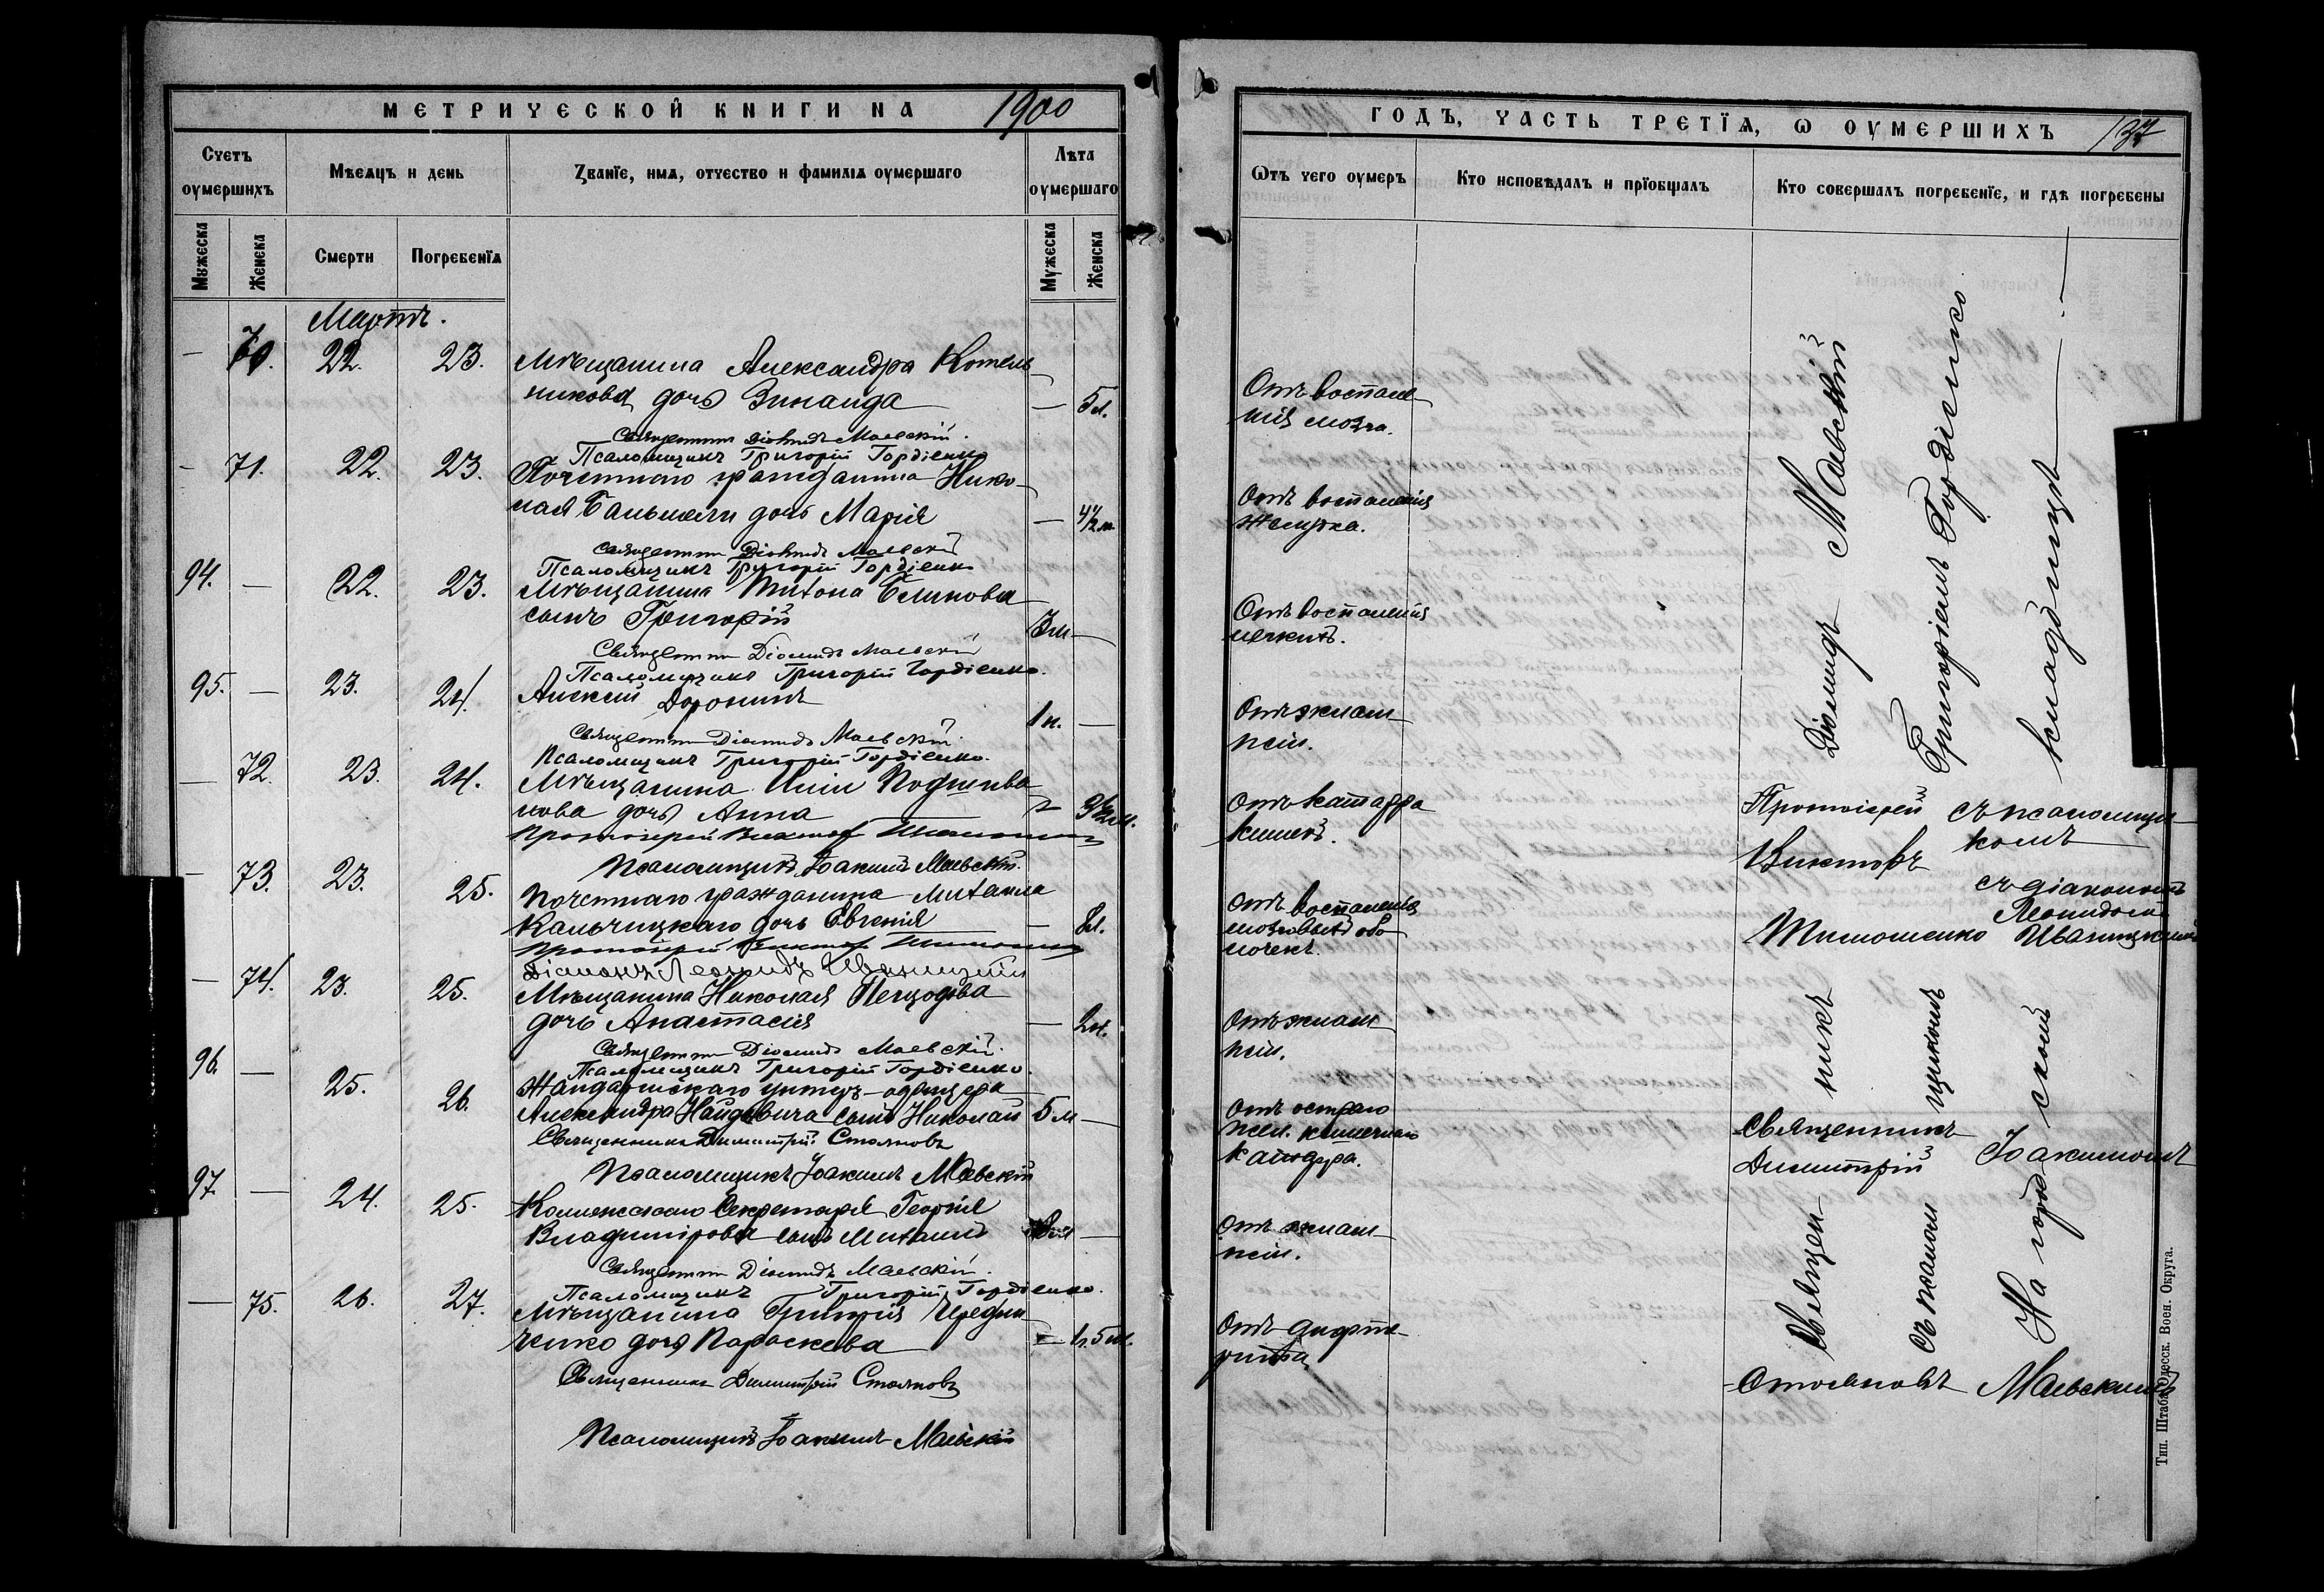 МЕТРИЧЕСКОЙ КНИГИ НА 1900
Счетъ оумершихъ
Мѣсяцъ и день
Званїе, имя, отчество и фамилїя оумершаго
Лѣта оумершаго
Мужеска
Женска
Смерти
Погребенїя
Мужеска
Женска
Мартъ.
— 70. 22. 23. Мѣщанина Александра Котель-
никова дочь Зинаида — 5 л.
Священникъ Діомидъ Маевскій.
Псаломщикъ Григорій Гордіенко
— 71. 22. 23. Почетнаго гражданина Нико-
лая дочь Марія — 4½ м.
Священникъ Діомидъ Маевскій
Псаломщикъ Григорій Гордіенко
94. — 22. 23. Мѣщанина Титона Беликова
сынъ Григорій 3 м —
Священникъ Діомидъ Маевскій
Псаломщикъ Григорій Гордіенко.
95. — 23. 24. Алексій Доронинъ
1 н. —
Священникъ Діомидъ Маевскій.
Псаломщикъ Григорій Гордіенко.
— 72. 23. 24. Мѣщанина Иліи Подшива-
лова дочь Анна
Протоіерей Викторъ Тимошенко
Псаломщикъ Іоакимъ Маевскій.
— 73. 23. 25. Почетнаго гражданина Михаила
Кальчицкаго дочь Евгенія — 8 л.
Протоіерей Викторъ Тимошенко
Діаконъ Леонидъ Иваницкій
— 74. 23. 25. Мѣщанина Николая
дочь Анастасія — 2 н.
Священникъ Діомидъ Маевскій.
Псаломщикъ Григорій Гордіенко.
96. — 25. 26. Жандармскаго унтеръ-офицера
Александра Найдовича сынъ Николай 5 м —
Священникъ Димитрій Стояновъ
Псаломщикъ Іоакимъ Маевскій
97. — 24. 25. Коллежскаго Секретаря Георгія
Владимірова сынъ Михаилъ —
Священникъ Діомидъ Маевскій.
Псаломщикъ Григорій Гордіенко.
— 75. 26. 27. Мѣщанина Григорія Чередни-
ченко дочь Параскева — 1 г. 5 м.
Священникъ Димитрій Стояновъ
Псаломщикъ Іоакимъ Маевскій
ГОДЪ, ЧАСТЬ ТРЕТЇЯ, Ѡ ОУМЕРШИХЪ 137
Ѿтъ чего оумеръ
Кто исповѣдалъ и прїобщалъ
Кто совершалъ погребенїе, и гдѣ погребены
Отъ воспале-
нія мозга.
Отъ воспаленія
желудка.
Отъ воспаленія
легкихъ.
Отъ эклам-
псіи.
Отъ катарра
кишекъ.
Отъ воспаленія
мозговыхъ обо-
лочекъ.
Отъ эклам-
псіи.
Отъ остраго
жел. кишечнаго
катарра.
Отъ эклам-
псіи.
Отъ дифте-
рита
Священникъ Діомидъ Маевскій
съ псаломщикомъ Григоріемъ Гордіенко
На городскомъ кладбищѣ —
Протоіерей
съ псаломщи-
комъ
Викторъ
съ діакономъ
Леонидомъ
Тимошенко Иваницкимъ
Священникъ
Димитрій Іоакимомъ
Стояновъ Маевскимъ
Тип. Штаба Одесск. Воен. Округа.